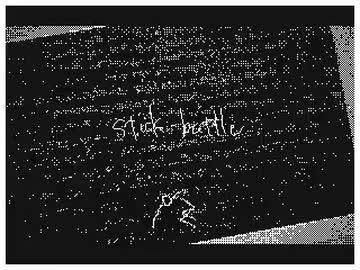 stick battle